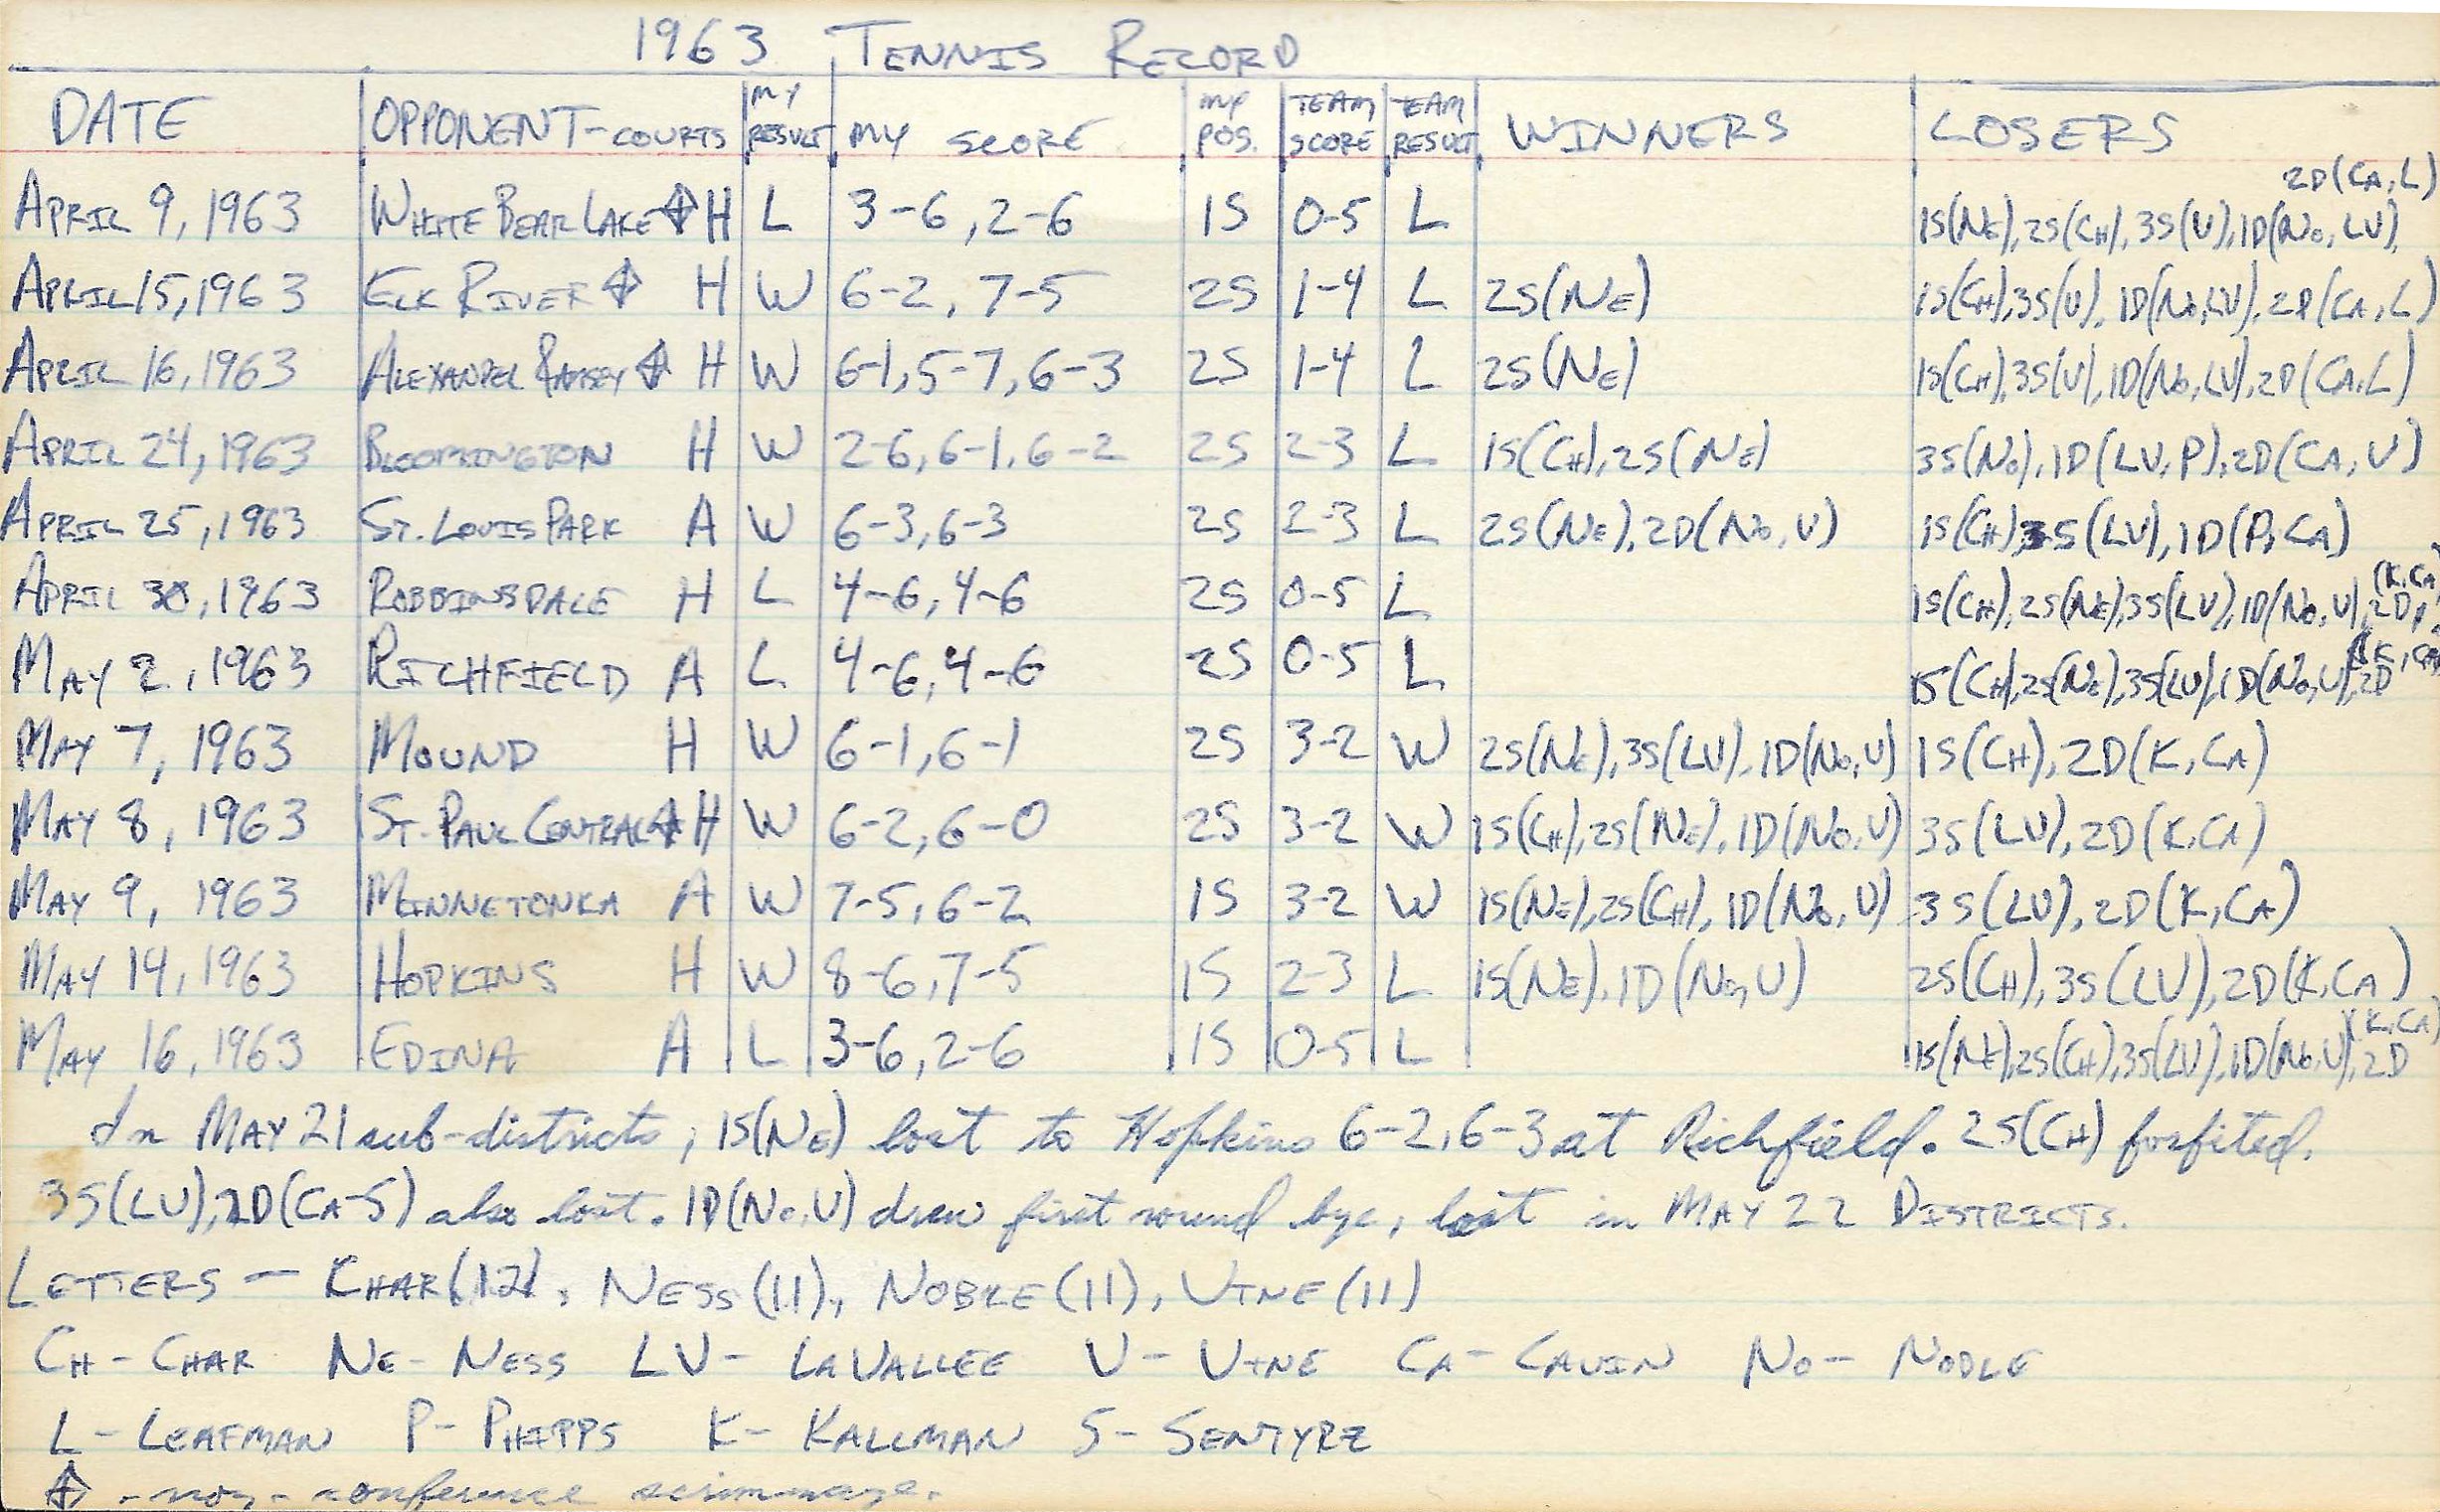 1963 TENNIS RECORD
DATE OPPONENT-COURTS MY RESULT MY SCORE MY POS. TEAM SCORE TEAM RESULT WINNERS LOSERS
APRIL 9, 1963 WHITE BEAR LAKE H L 3-6, 2-6 1S 0-5 L 1S(NE), 2S(CH), 3S(V), 1D(NO, LV), 2D(CA, L)
APRIL 15, 1963 ELK RIVER H W 6-2, 7-5 2S 1-4 L 2S(NE) 1S(CH), 3S(V), 1D(NO, LV), 2D(CA, L)
APRIL 16, 1963 ALEXANDER RAMSEY H W 6-1, 5-7, 6-3 2S 1-4 L 2S(NE) 1S(CH), 3S(V), 1D(NO, LV), 2D(CA, L)
APRIL 24, 1963 BLOOMINGTON H W 2-6, 6-1, 6-2 2S 2-3 L 1S(CH), 2S(NE) 3S(NO), 1D(LV, P), 2D(CA, V)
APRIL 25, 1963 ST. LOUIS PARK A W 6-3, 6-3 2S 2-3 L 2S(NE), 2D(NO, V) 1S(CH), 3S(LV), 1D(P, CA)
APRIL 30, 1963 ROBBINSDALE H L 4-6, 4-6 2S 0-5 L 1S(CH), 2S(NE), 3S(LV), 1D(NO, V), 2D(K, CA)
MAY 2, 1963 RICHFIELD A L 4-6, 4-6 2S 0-5 L 1S(CH), 2S(NE), 3S(LV), 1D(NO, V), 2D(K, CA)
MAY 7, 1963 MOUND H W 6-1, 6-1 2S 3-2 W 2S(NE), 3S(LV), 1D(NO, V) 1S(CH), 2D(K, CA)
MAY 8, 1963 ST. PAUL CENTRAL H W 6-2, 6-0 2S 3-2 W 1S(CH), 2S(NE), 1D(NO, V) 3S(LV), 2D(K, CA)
MAY 9, 1963 MINNETONKA A W 7-5, 6-2 1S 3-2 W 1S(NE), 2S(CH), 1D(NO, V) 3S(LV), 2D(K, CA)
MAY 14, 1963 HOPKINS H W 8-6, 7-5 1S 2-3 L 1S(NE), 1D(NO, V) 2S(CH), 3S(LV), 2D(K, CA)
MAY 16, 1963 EDINA A L 3-6, 2-6 1S 0-5 L 1S(NE), 2S(CH), 3S(LV), 1D(NO, V), 2D(K, CA)
In MAY 21 sub-districts, 1S(NE) lost to Hopkins 6-2, 6-3 at Richfield. 2S(CH) forfited.
3S(LV), 2D(CA-S) also lost. 1D(NO, V) drew first round bye, lost in MAY 22 DISTRICTS.
LETTERS - CHAR(12), NESS(11), NOBLE(11), VINE(11)
CH - CHAR NE - NESS LV - LAVALLEE V - VINE CA - CAVIN NO - NOBLE
L - LEAFMAN P - PHIPPS K - KALLMAN S - SENTYRZ
- non-conference scrimmage.